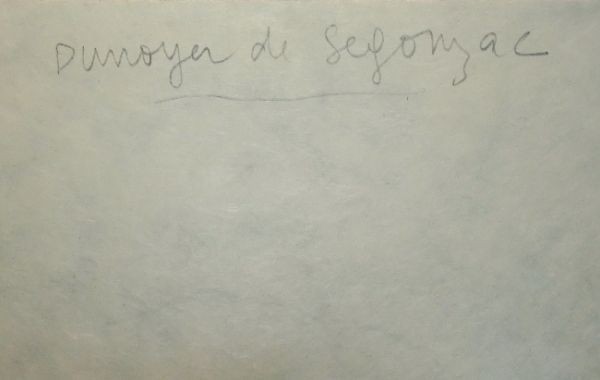 Dunoyer de Segonzac